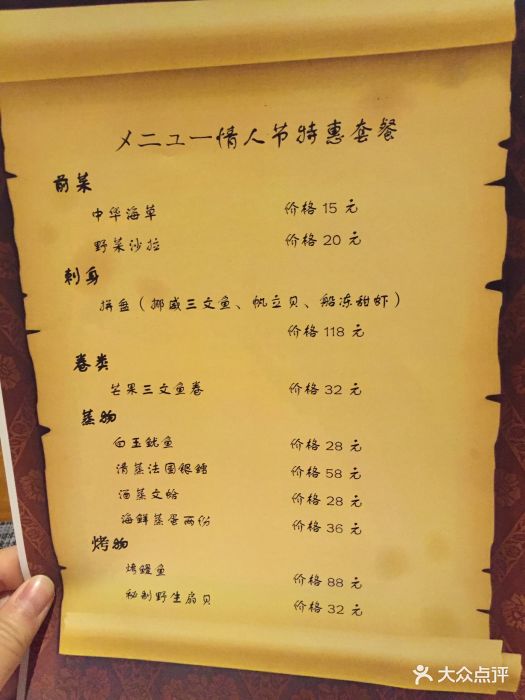 メニュー情人节特惠套餐
前菜
中华海草 价格 15 元
野菜沙拉 价格 20 元
刺身
拼盘(挪威三文鱼、帆立贝、船冻甜虾)
价格 118 元
卷类
芒果三文鱼卷 价格 32 元
蒸物
白玉鱿鱼 价格 28 元
清蒸法国银鳕 价格 58 元
酒蒸文蛤 价格 28 元
海鲜蒸蛋两份 价格 36 元
烤物
烤鳗鱼 价格 88 元
秘制野生扇贝 价格 32 元
大众点评